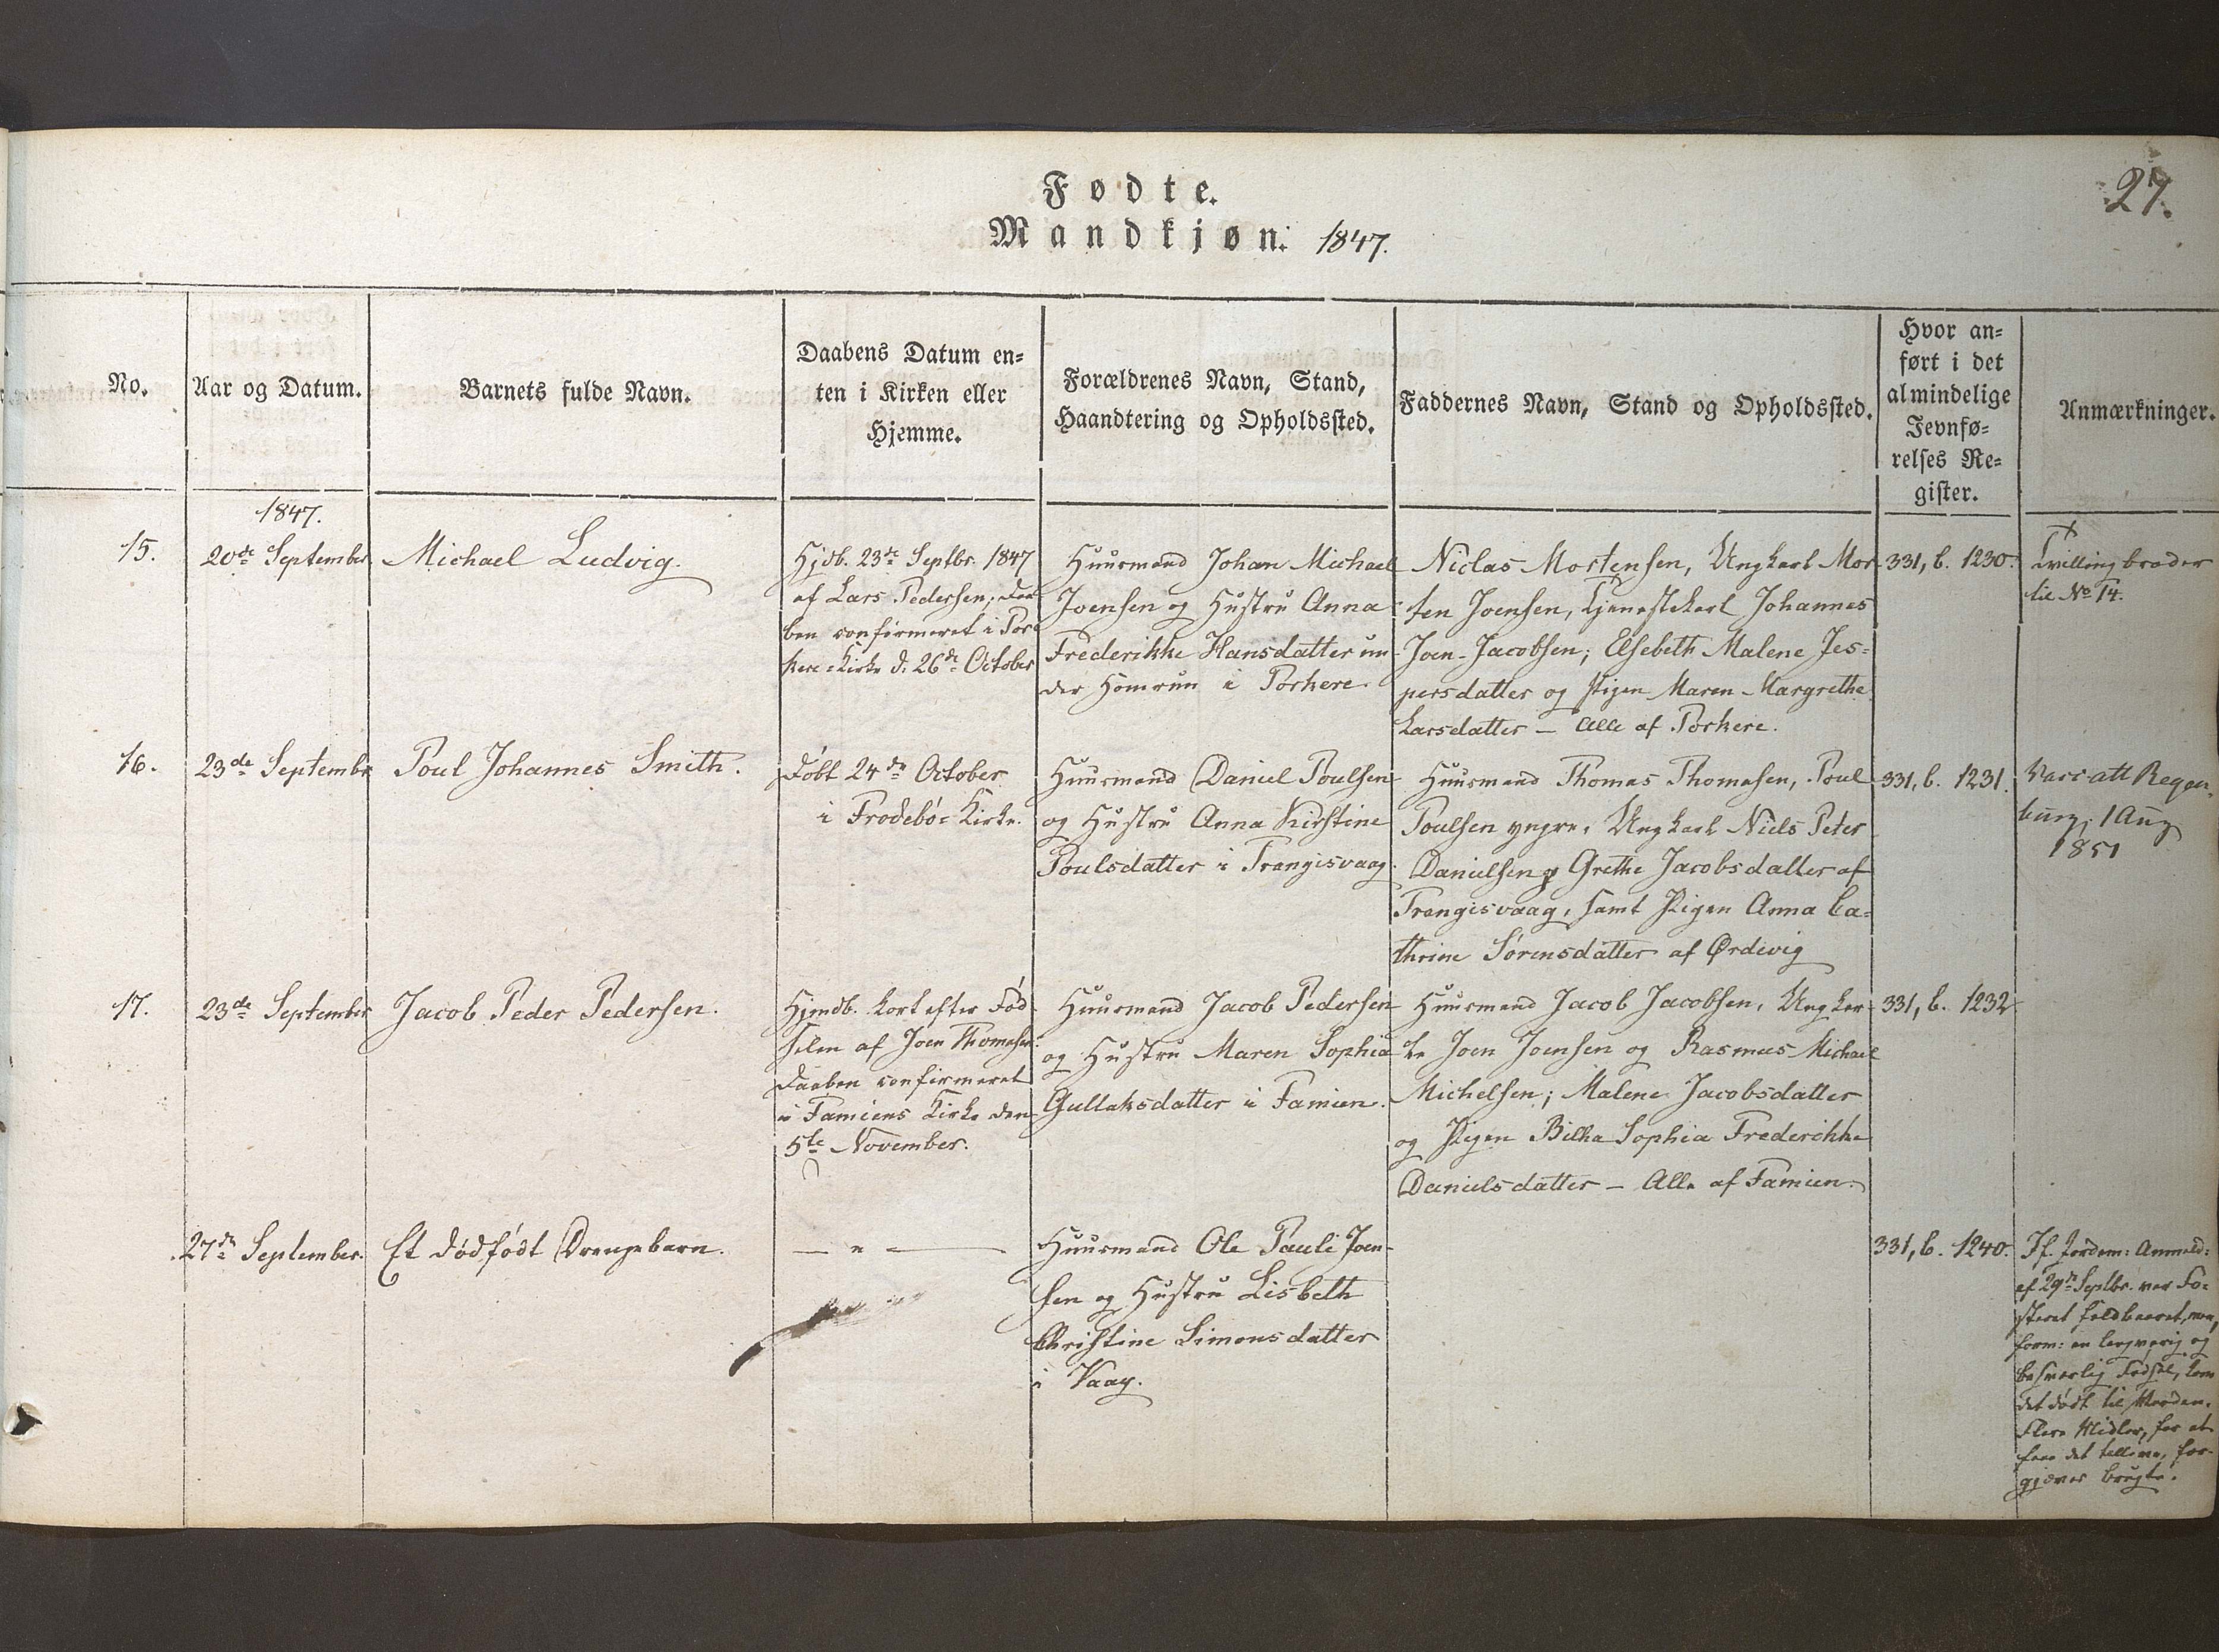 27.
Fødte.
Mandkjøn. 1847.
No.
Aar og Datum.
Barnets fulde Navn.
Daabens Datum en=
ten i Kirken eller
Hjemme.
Forældrenes Navn, Stand,
Haandtering og Opholdssted.
Faddernes Navn, Stand og Opholdssted.
Hvor an=
ført i det
almindelige
Jevnfø=
relses Re=
gister.
Anmærkninger.
1847.
15.
20de September
Michael Ludvig.
Hjdb. 23de Septbr. 1847
af Lars Pedersen; Daa-
ben confirmeret i Por=
kere=Kirke d. 26de October
Huusmand Johan Michael
Joensen og Hustru Anna
Frederikke Hansdatter un-
der Homrum i Porkere.
Niclas Mortensen, Ungkarl Mor-
ten Joensen, Tjenestekarl Johannes
Joen-Jacobsen; Elsebeth Malene Jes=
persdatter og Pigen Maren-Margrethe
Larsdatter — Alle af Porkere.
331, b. 1230.
Tvillingbroder
til No 14.
16.
23de Septembr
Poul Johannes Smith.
Døbt 24de October
i Frodebø=Kirke.
Huusmand Daniel Poulsen
og Hustru Anna Kirstine
Poulsdatter i Trangisvaag.
Huusmand Thomas Thomasen, Poul
Poulsen yngre, Ungkarl Niels Peter
Danielsen og Grethe Jacobsdatter af
Trangisvaag, samt Pigen Anna Ca=
thrine Sørensdatter af Ørdevig
331, b. 1231.
Vacc. att Regen-
burg, 1 Aug
1851
17.
23de September
Jacob Peder Pedersen.
Hjmdb. kort efter Fød-
selen af Joen Thomasen.
Daaben confirmeret
i Famiens Kirke den
5te November.
Huusmand Jacob Pedersen
og Hustru Maren Sophia
Gullaksdatter i Famien.
Huusmand Jacob Jacobsen, Ungkar-
le Joen Joensen og Rasmus Michael
Michelsen; Malene Jacobsdatter
og Pigen Billa Sophia Frederikke
Danielsdatter — Alle af Famien.
331, b. 1232
27de September.
Et dødfødt Drengebarn.
— " —
Huusmand Ole Pauli Joen-
sen og Hustru Lisbeth
Christine Simonsdatter
i Vaag.
331, b. 1240.
If. Jordem: Anmeld:
af 29de Septbr. var Fo-
steret fuldbaaret, men,
form: en langvarig og
besværlig Fødsel, kom
det dødt til Verden.
Flere Midler, for at
faae det tillive, for-
gjæves brugte.